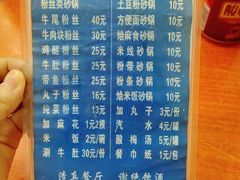 粉丝类砂锅 土豆粉砂锅 10元
牛尾粉丝 40元 方便面砂锅 10元
牛肉块粉丝 30元 烩麻食砂锅 10元
鸡腿粉丝 25元 米线砂锅 10元
牛肚粉丝 25元 粉带砂锅 10元
牛筋粉丝 25元 粉条砂锅 10元
丸子粉丝 16元 烩米饭砂锅 10元
纯菜粉丝 13元 加丸子 3元/份
加麻花 1元2根 汽水 4元/罐
米饭 2元/碗 酸梅汤 5元/瓶
涮牛肚 30元/份 餐巾纸 1元/包
清真餐厅 谢绝饮酒